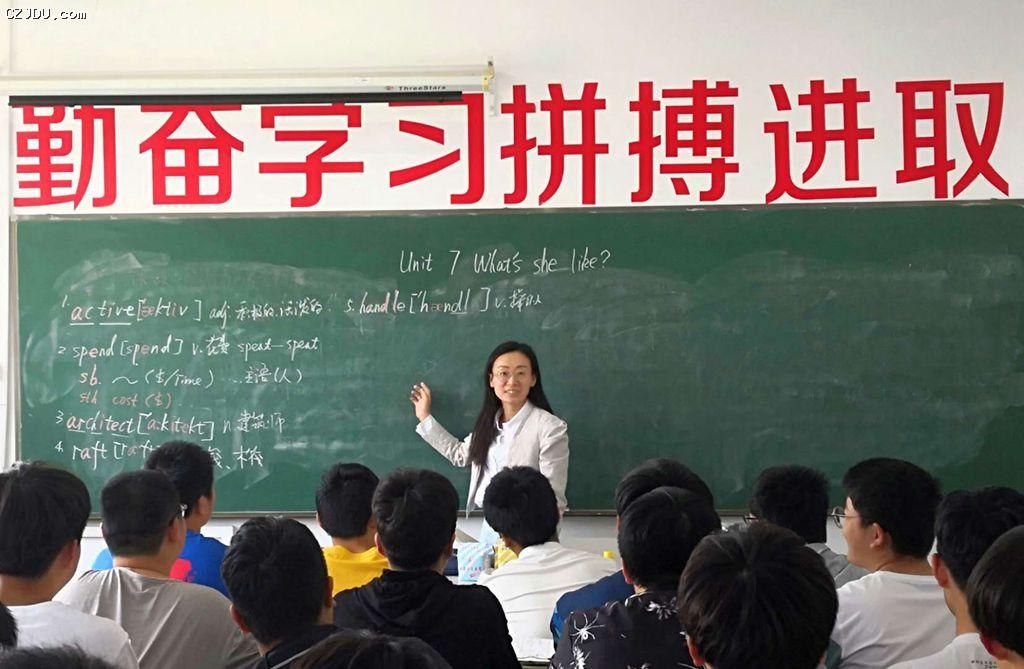 CZJDU.com
ThreeStars
勤奋学习拼搏进取
Unit 7 What's she like?
1. active[æktiv] adj. 积极的,活泼的 5. handle['hændl] v. 操队
2. spend[spend] v. 花费 spent—spent
sb. ~ ($/Time) ... 主语(人)
sth cost ($)
3. architect['a:kitekt] n. 建筑师
4. raft